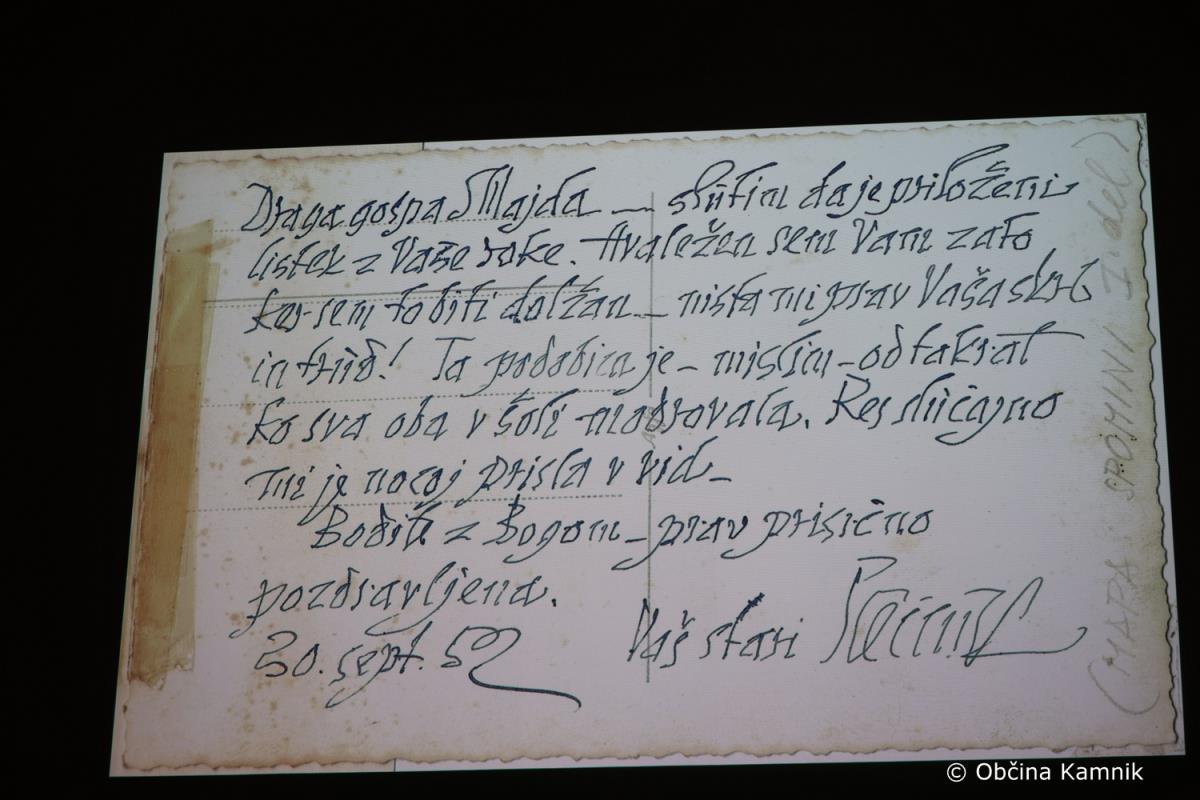 Draga gospa Majda — slutim da je priloženi
listek z Vaše roke. Hvaležen sem Vam zato
ker sem to biti dolžan — nista mi prav Vaša skrb
in trud! Ta podobica je — mislim — od takrat
ko sva oba v šoli modrovala. Res slučajno
mi je nocoj prišla v vid —
Bodite z Bogom — prav prisrčno
pozdravljena.
30. sept. 52
Vaš stari
(MAPA: SPOMINI I. del)
© Občina Kamnik